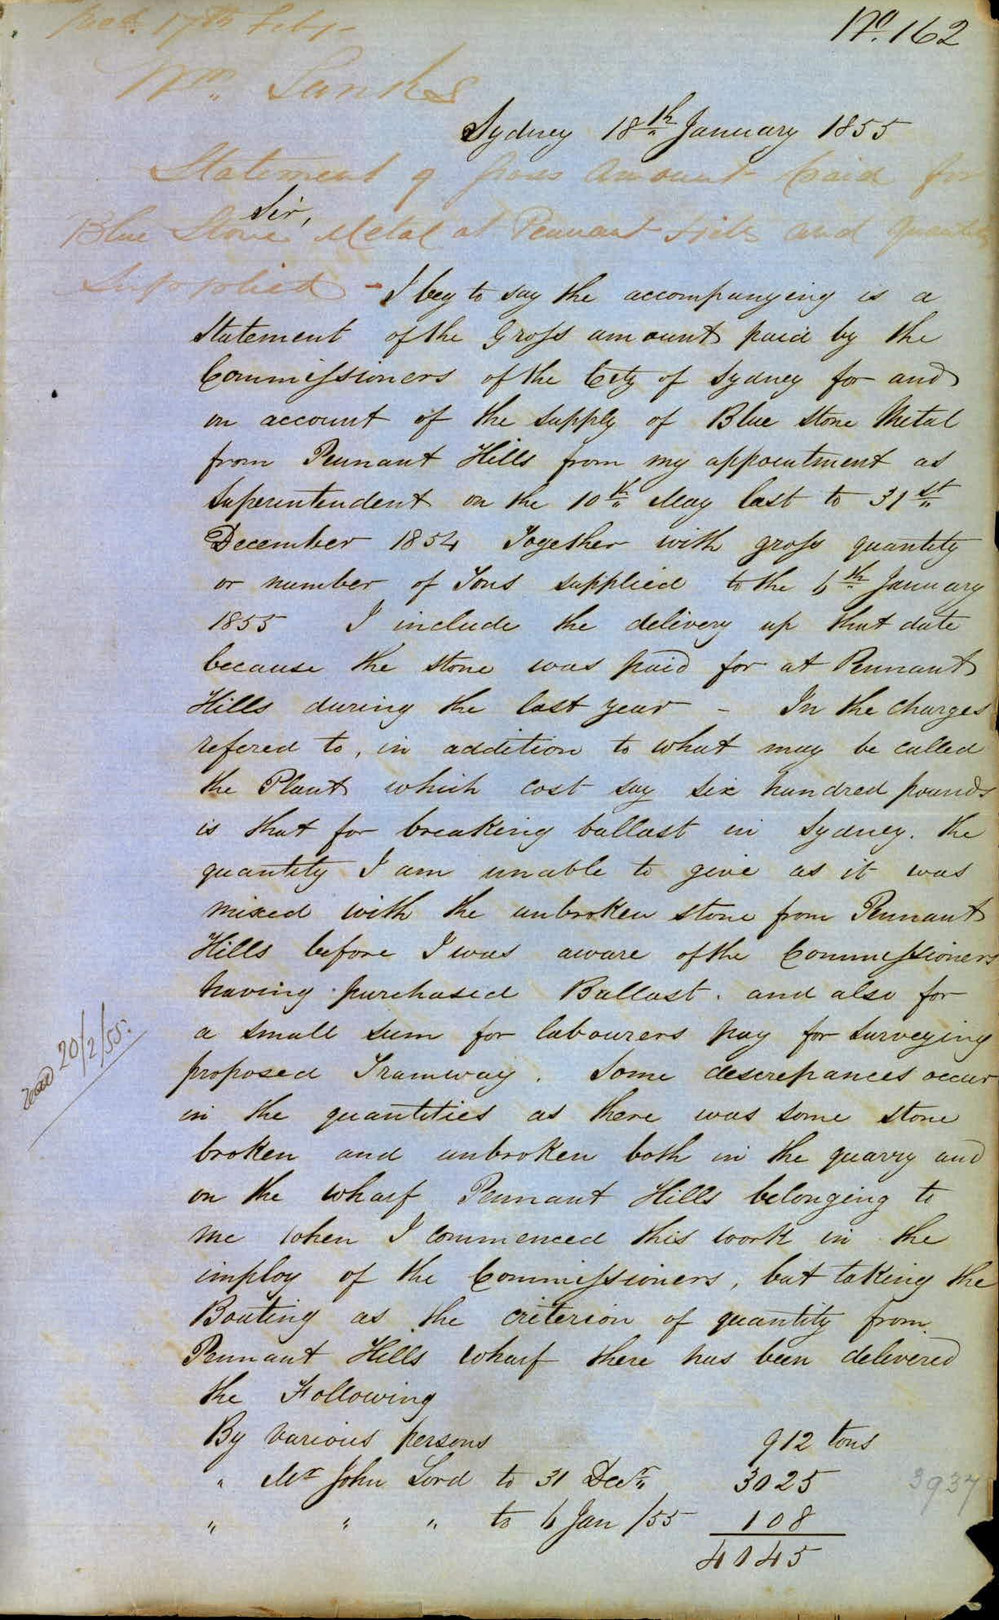 Recd. 17th Feby
No. 162
Wm. Sands
Sydney 18th January 1855
Statement of Gross Amount paid for
Sir,
Blue Stone Metal at Pennant Hills and Quantity
Supplied -
I beg to say the accompanying is a
Statement of the Gross amount paid by the
Commissioners of the City of Sydney for and
on account of the supply of Blue stone Metal
from Pennant Hills from my appointment as
Superintendent on the 10th May last to 31st
December 1854 Together with gross quantity
or number of Tons supplied to the 6th January
1855 I include the delivery up that date
because the stone was paid for at Pennant
Hills during the last year - In the charges
refered to, in addition to what may be called
the Plant which cost say six hundred pounds
is that for breaking ballast in Sydney. the
quantity I am unable to give as it was
mixed with the unbroken stone from Pennant
Hills before I was aware of the Commissioners
having purchased Ballast. and also for
a small sum for labourers pay for surveying
proposed Tramway. Some descrepances occur
in the quantities as there was some stone
broken and unbroken both in the quarry and
on the wharf Pennant Hills belonging to
me when I commenced this work in the
imploy of the Commissioners, but taking the
Boating as the criterion of quantity from
Pennant Hills wharf there has been delivered
the Following
By various persons 912 tons
" Mr John Lord to 31 Decr 3025
3937
" " " to 6 Jan /55 108
4045
20/2/55.